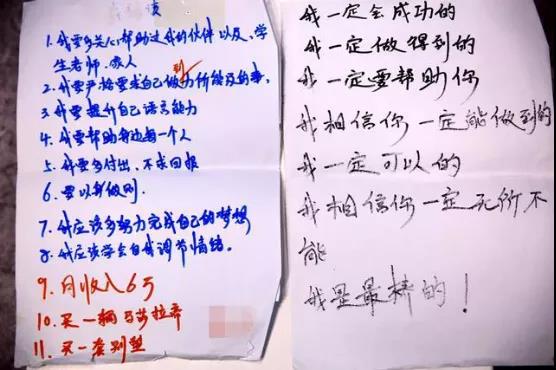 1. 我要多关心帮助过我的伙伴以及,学
生老师,家人
2. 我要严格要求自己做到力所能及的事,
3. 我要提升自己语言能力
4. 我要帮助身边每一个人
5. 我要多付出,不求回报
6. 要以身做则.
7. 我应该多努力完成自己的梦想
8. 我应该学会自我调节情绪。
9. 月收入6万
10. 买一辆马莎拉蒂
11. 买一套别墅
我一定会成功的
我一定做得到的
我一定要帮助你
我相信你一定能做到的
我一定可以的
我相信你一定无所不
能
我是最棒的!